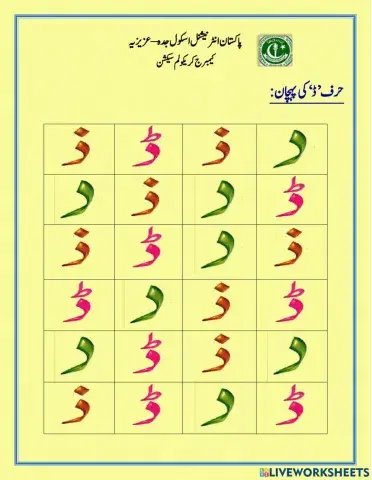 پاکستان انٹرنیشنل اسکول جدہ – عزیزیہ
کیمبرج کریکولم سیکشن
حرف ’ڈ‘ کی پہچان:
د ذ ڈ ذ
ڈ د ذ د
ذ د ڈ ذ
ڈ ذ د ڈ
د ذ ڈ د
ڈ د ڈ ذ
LIVEWORKSHEETS